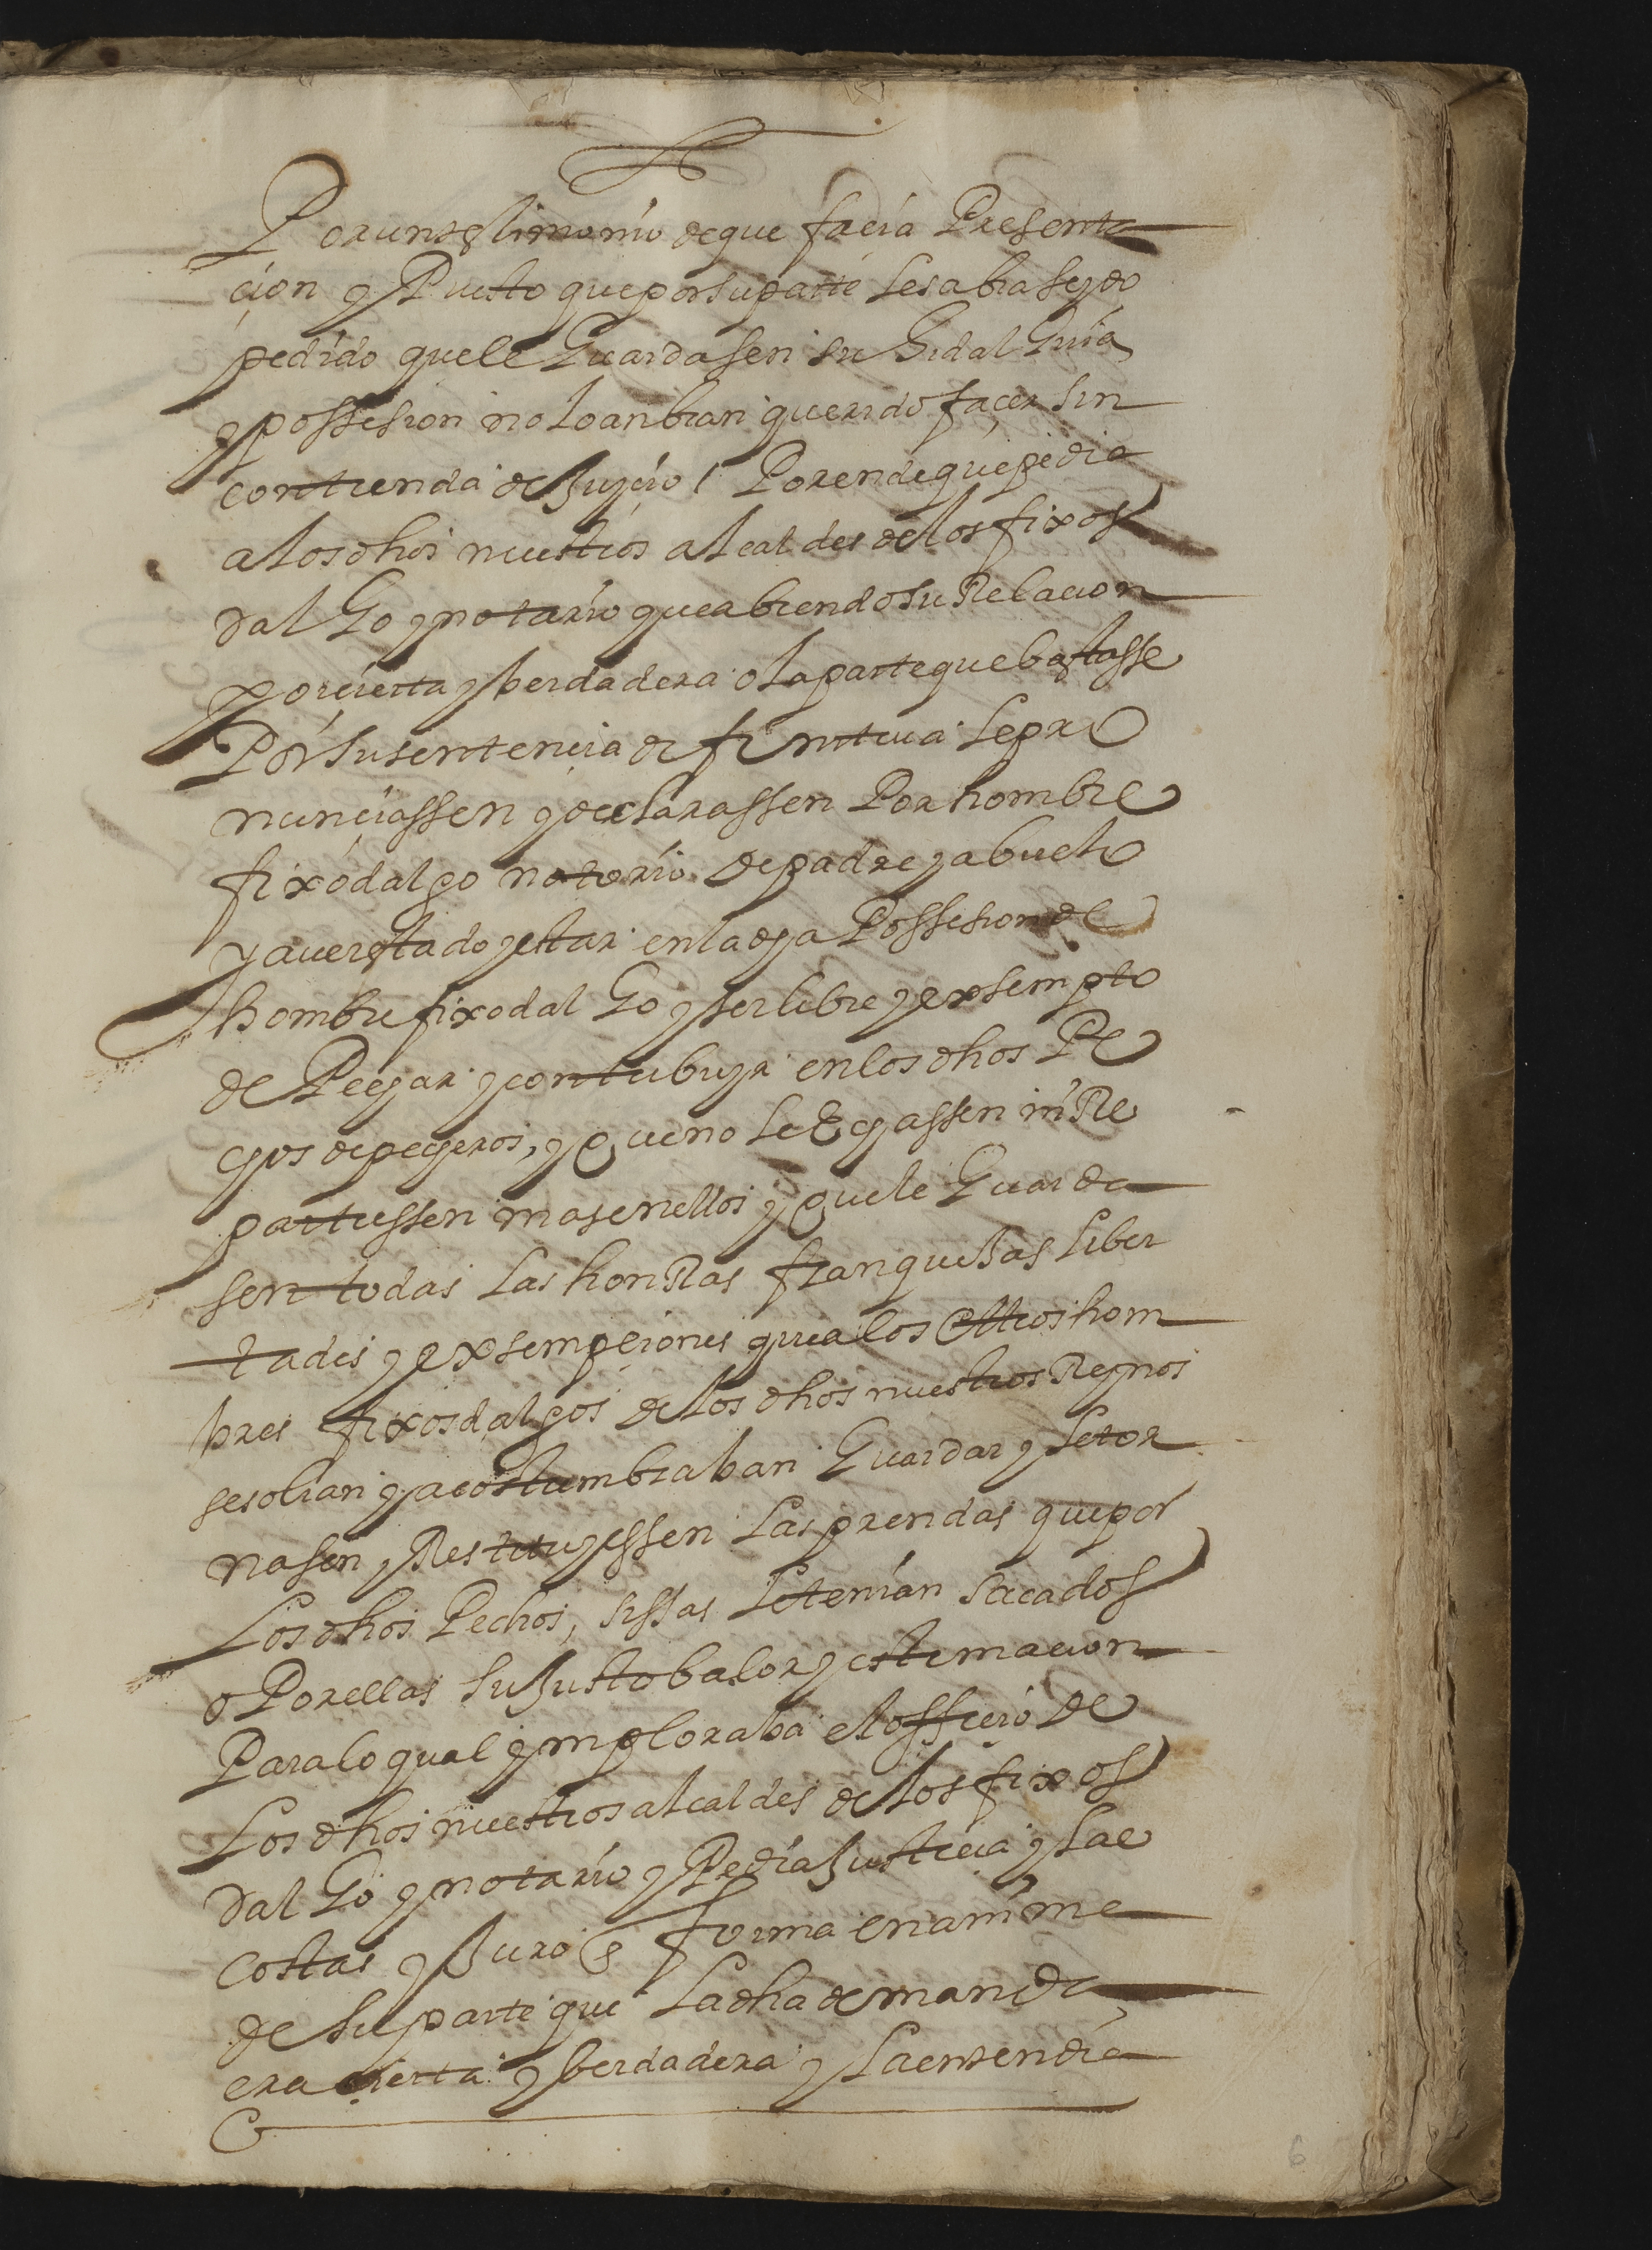 Por un testimonio de que facia Presenta
cion y Puesto que por su parte les abia seydo
pedido que le Guardasen su Hidal Guia
y possesion no lo anbian querido façer sin
contienda de Juycio / Por ende que pedia
a los dhos nuestros alcaldes de los fixos
dal Go y notario que abiendo su Relacion
por cierta y berdadera o la parte que bastasse
Por su sentencia difinitiua le pro
nunciassen y declarassen Por hombre
fixodalgo notorio de padre y abuelo
y auer estado y estar en la dha Possesion de
hombre fixodal Go y ser libre y exsempto
de Pechar y contribuyr en los dhos Pe
chos de pecheros, y que no le Echassen ni Re
partiessen mas en ellos y que le Guarda
sen todas las honRas franqueças liber
tades y exsempciones que a los otros hom
bres fixosdalgos de los dhos nuestros Reynos
se solian y acostumbraban Guardar y le tor
nasen y Restituyessen las prendas que por
los dhos Pechos, sissas le tenian sacados
o Por ellas su Justo balor y estimacion
Para lo qual ymploraba el officio de
los dhos nuestros alcaldes de los fixos
dal Go y notario y Pedia Justicia y las
costas y Juro en forma en anima
de su parte que la dha demanda
era cierta y berdadera y la entendia
6